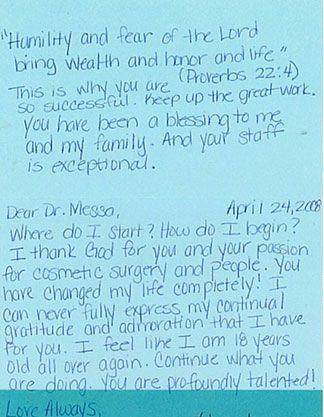 "Humility and fear of the Lord
bring wealth and honor and life"
(Proverbs 22:4)
This is why you are
so successful. Keep up the great work.
You have been a blessing to me
and my family. And your staff
is exceptional.
Dear Dr. Messa, April 24, 2008
Where do I start? How do I begin?
I thank God for you and your passion
for cosmetic surgery and people. You
have changed my life completely! I
can never fully express my continual
gratitude and admoration that I have
for you. I feel like I am 18 years
old all over again. Continue what you
are doing. You are profoundly talented!
Love Always,